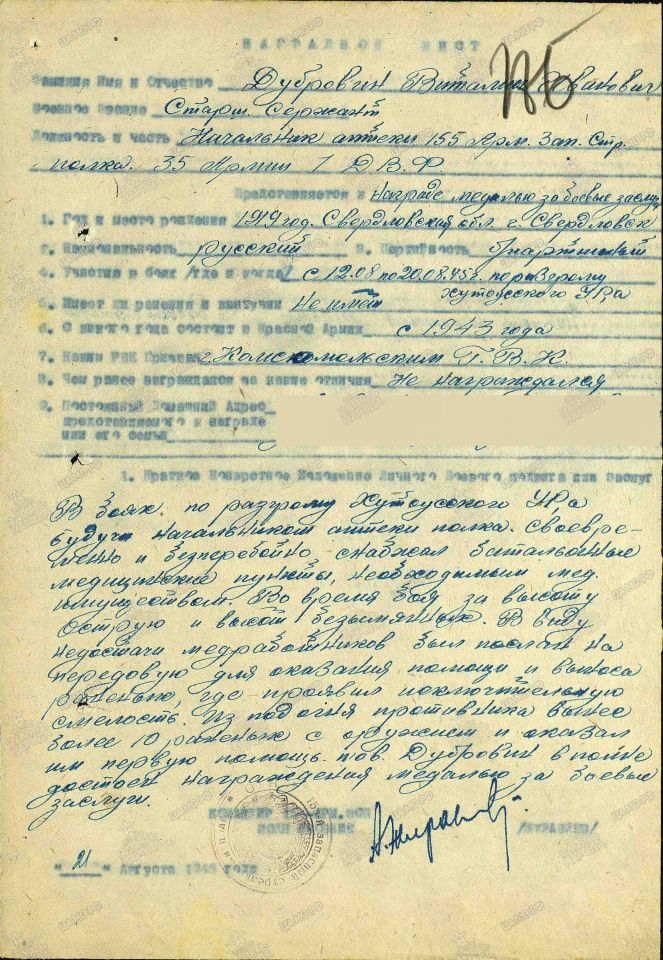 НАГРАДНОЙ ЛИСТ
Фамилия Имя и Отчество Дубровин Виталий Иванович
Военное Звание Старш. Сержант
Должность и часть Начальник аптеки 155 Арм. Зап. Стр.
полка. 35 Армии 1 Д В.Ф.
Представляется к награде медалью за боевые заслуги
1. Год и место рождения 1919 год. Свердловская обл. г. Свердловск
2. Национальность русский 3. Партийность
4. Участие в боях /где и когда/ с 12.08 по 20.08.45г. по разгрому
Хутоусского УРа
5. Имеет ли ранения и контузии Не имеет
6. С какого года состоит в Красной Армии с 1943 года
7. Каким РВК Призван г. Комсомольским Г.В.К.
8. Чем ранее награждался за какие отличия Не награждался
9. Постоянный Домашний Адрес
представляемого к награде
или его семьи
1. Краткое Конкретное Изложение Личного Боевого подвига или Заслуг
В боях по разгрому Хутоусского УРа
будучи начальником аптеки полка. Своевре-
менно и безперебойно снабжал батальонные
медицинские пункты, необходимым мед.
имуществом. Во время боя за высоту
Острую и высот безымянных. В виду
недостачи медработников был послан на
передовую для оказания помощи и выноса
раненых, где проявил исключительную
смелость. Из под огня противника вынес
более 10 раненых с оружием и оказал
им первую помощь. тов. Дубровин вполне
достоен награждения медалью за боевые
заслуги.
КОМАНДИР
/МУРАВЛЕВ/
"21" Августа 1945 года